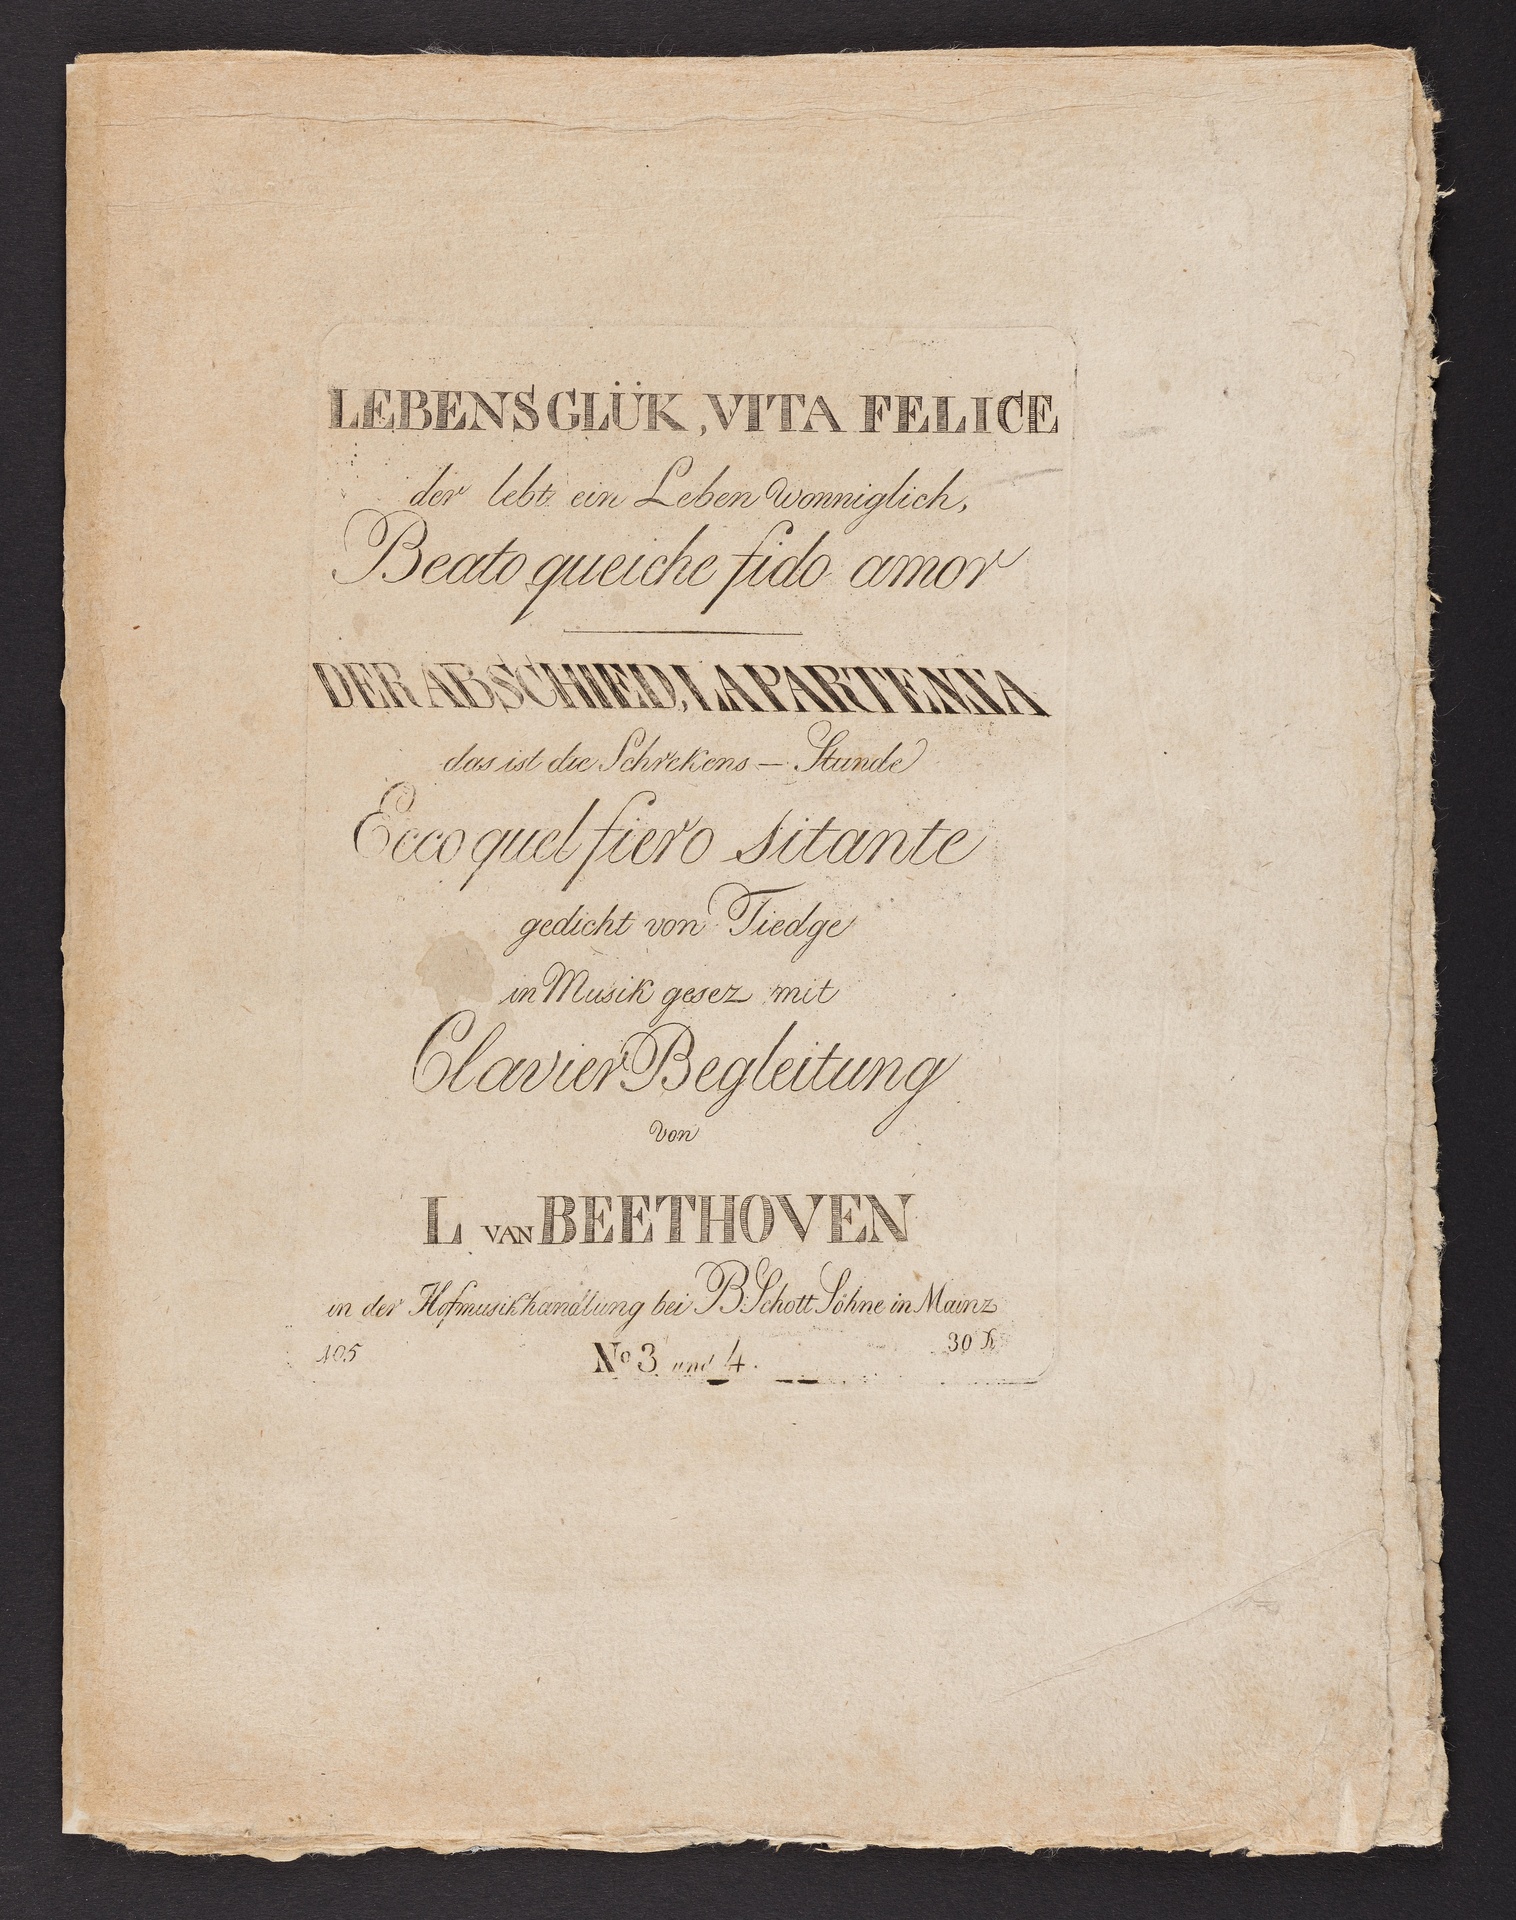 LEBENSGLÜK, VITA FELICE
der lebt ein Leben wonniglich,
Beato quei che fido amor
DER ABSCHIED, LA PARTENZA
das ist die Schrekens – Stunde
Ecco quel fiero istante
gedicht von Tiedge
in Musik gesez mit
Clavier Begleitung
von
L VAN BEETHOVEN
in der Hofmusikhandlung bei B. Schott Söhne in Mainz
105 No 3 und 4. 30